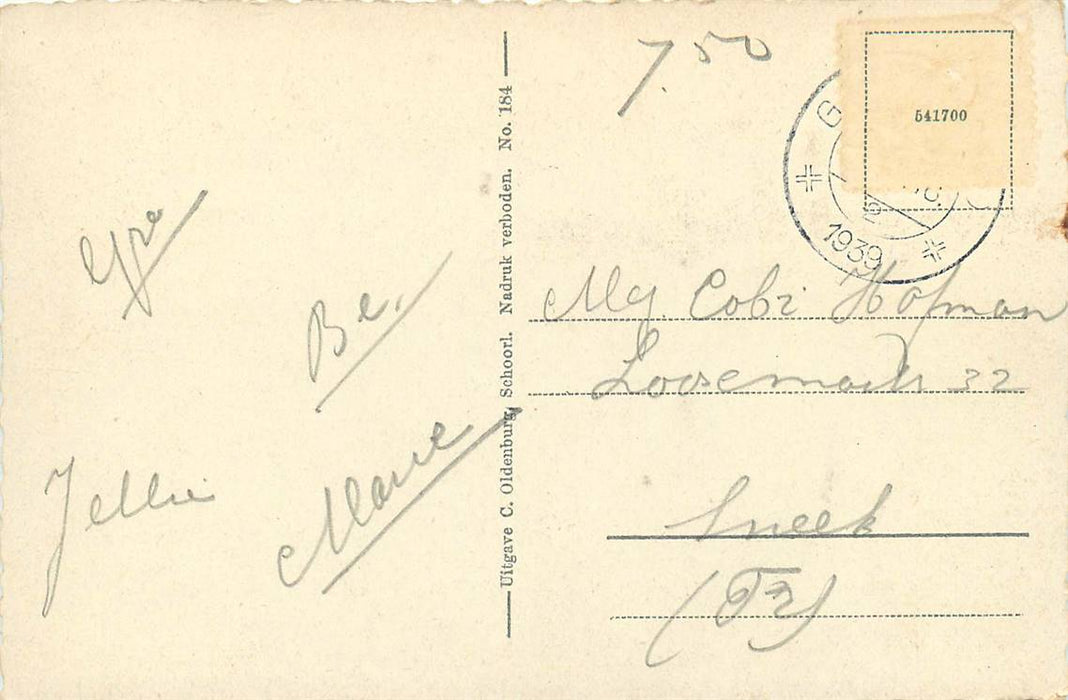 7.50
541700
G
1939
Gre
Be.
Marie
Jellie
Uitgave C. Oldenburg, Schoorl. Nadruk verboden. No. 184
Mej. Cobi Hofman
32
Sneek
(Fr)